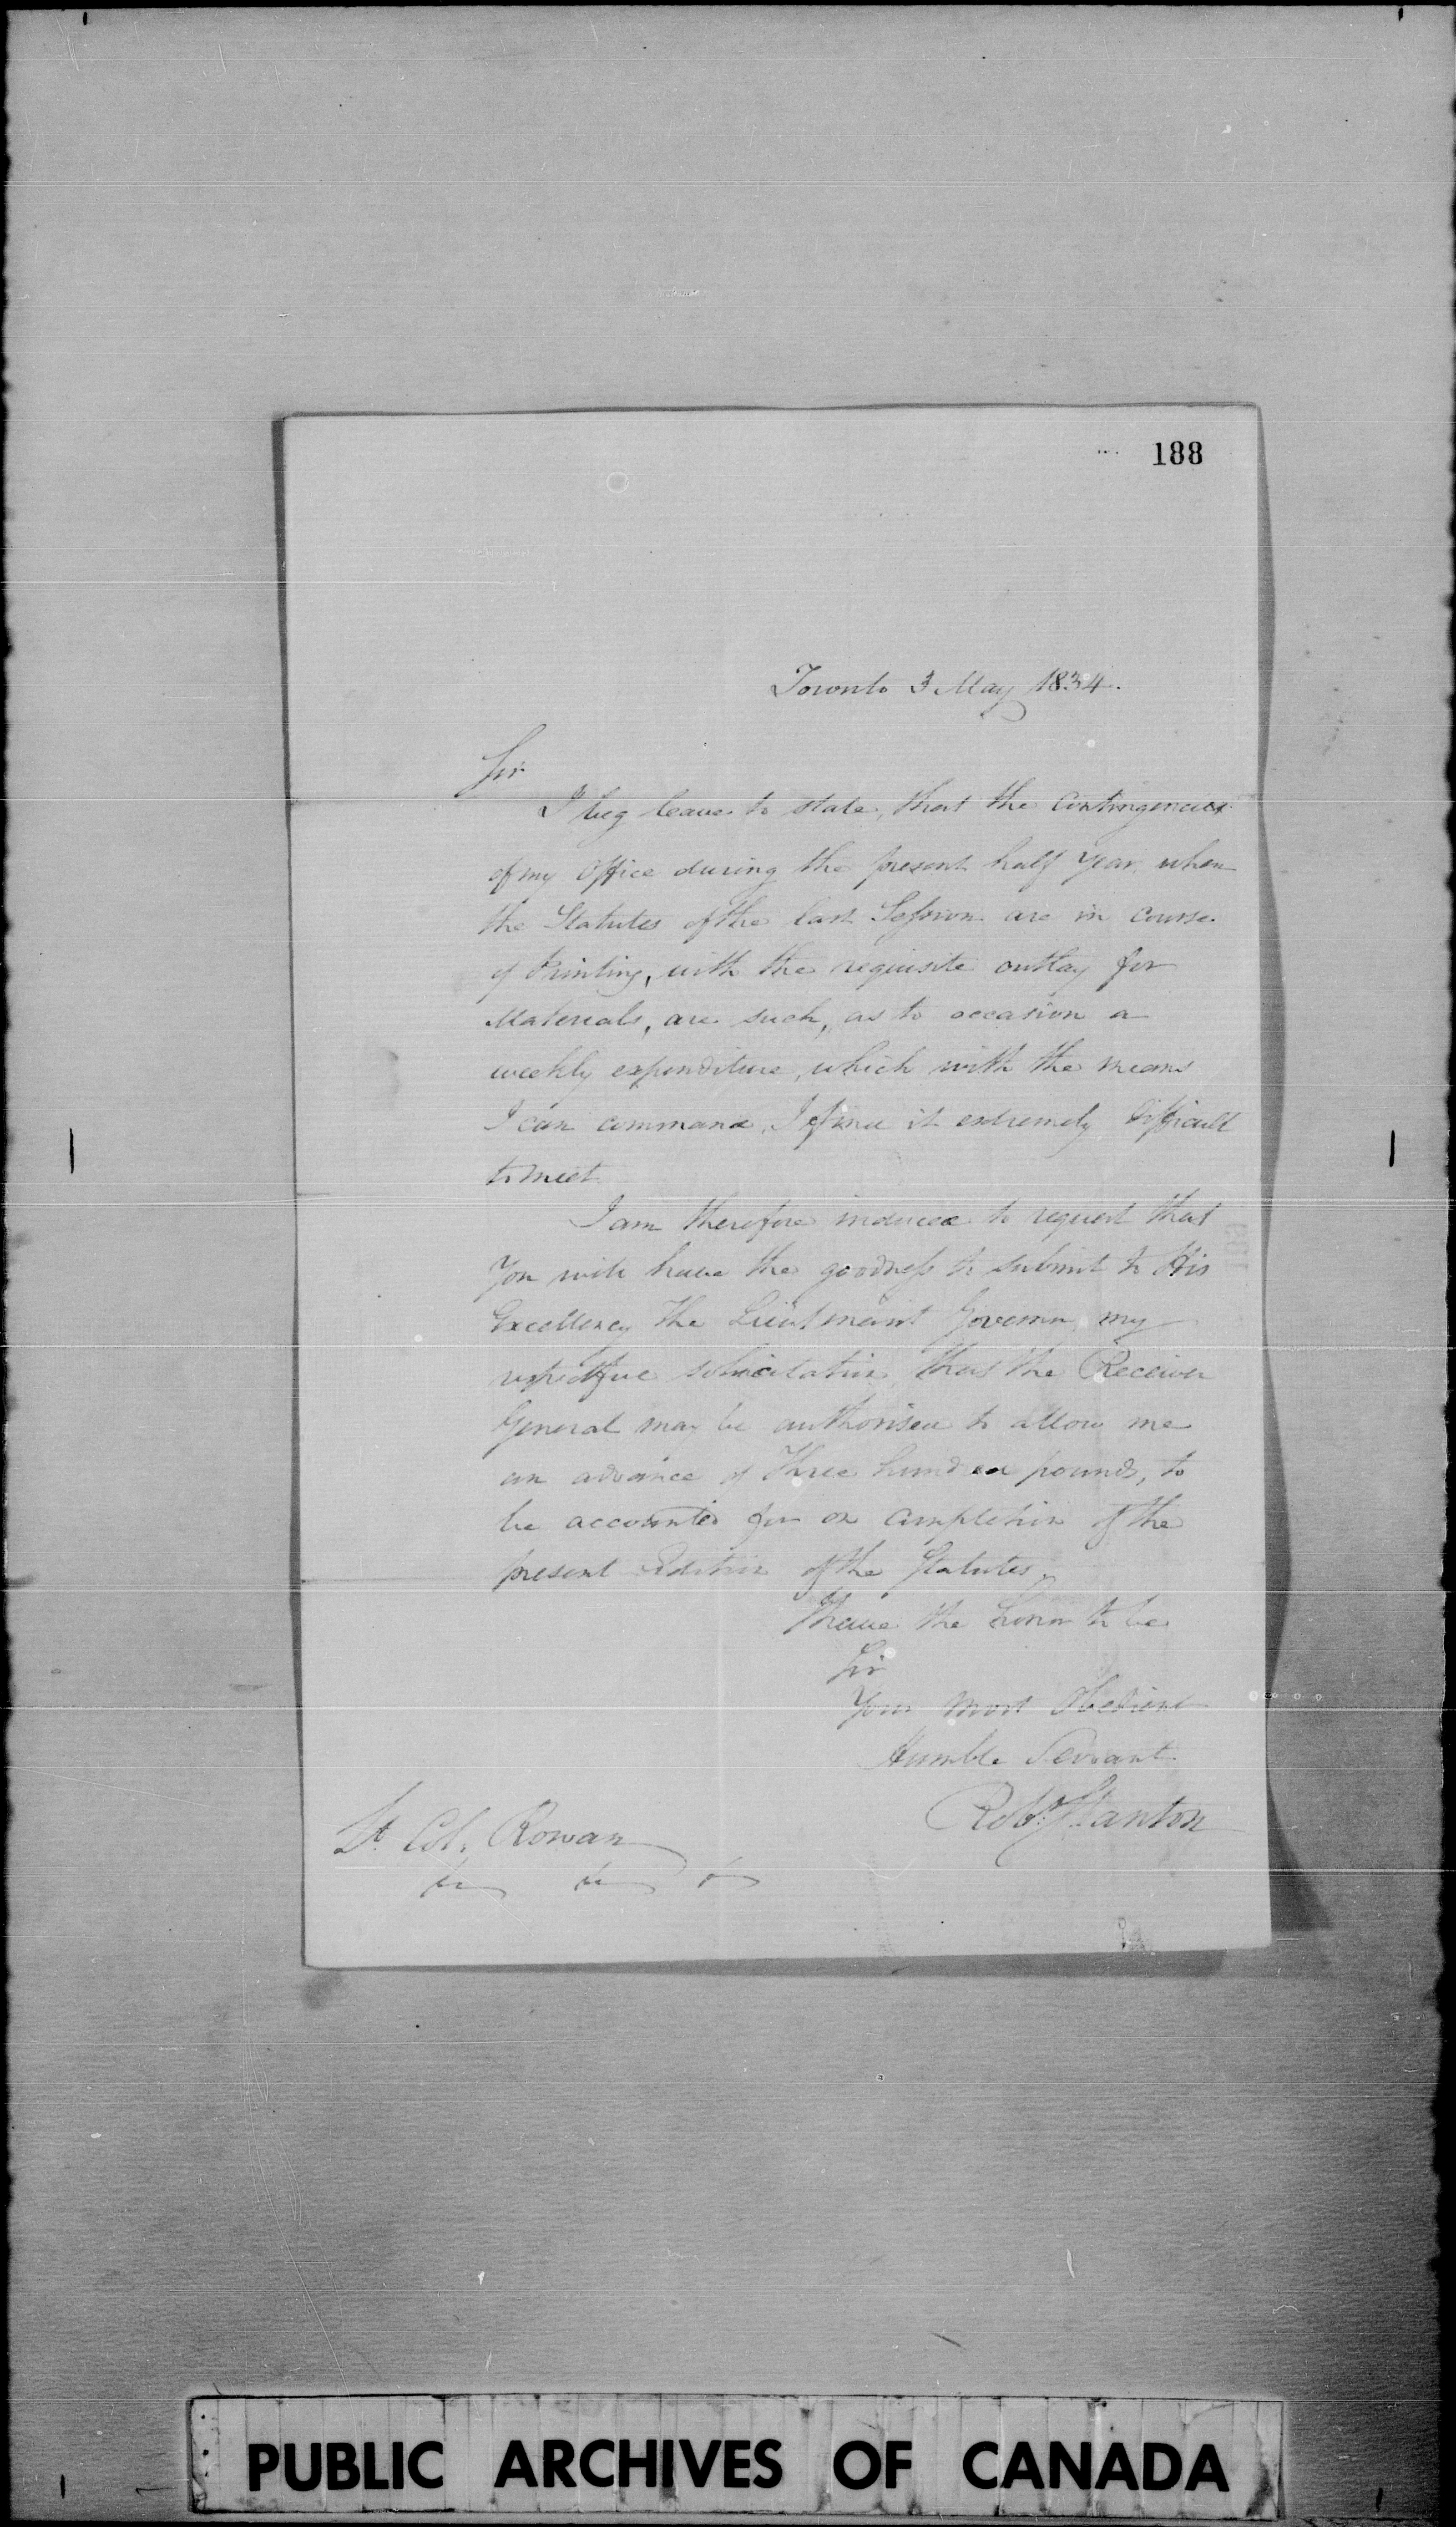 188
Toronto 3 May 1834.
Sir
I beg leave to state, that the Contingencies
of my Office during the present half year, when
the Statutes of the last Session are in course
of Printing, with the requisite outlay for
Materials, are such, as to occasion a
weekly expenditure, which with the means
I can command, I find it extremely difficult
to meet
I am therefore induced to request that
You will have the goodness to submit to His
Excellency the Lieutenant Governor my
respectful solicitation, that the Receiver
General may be authorised to allow me
an advance of Three hundred pounds, to
be accounted for on completion of the
present Edition of the Statutes.
I have the honor to be
Sir
Your most Obedient
Humble Servant
Robt. Stanton
Lt. Col. Rowan
PUBLIC ARCHIVES OF CANADA